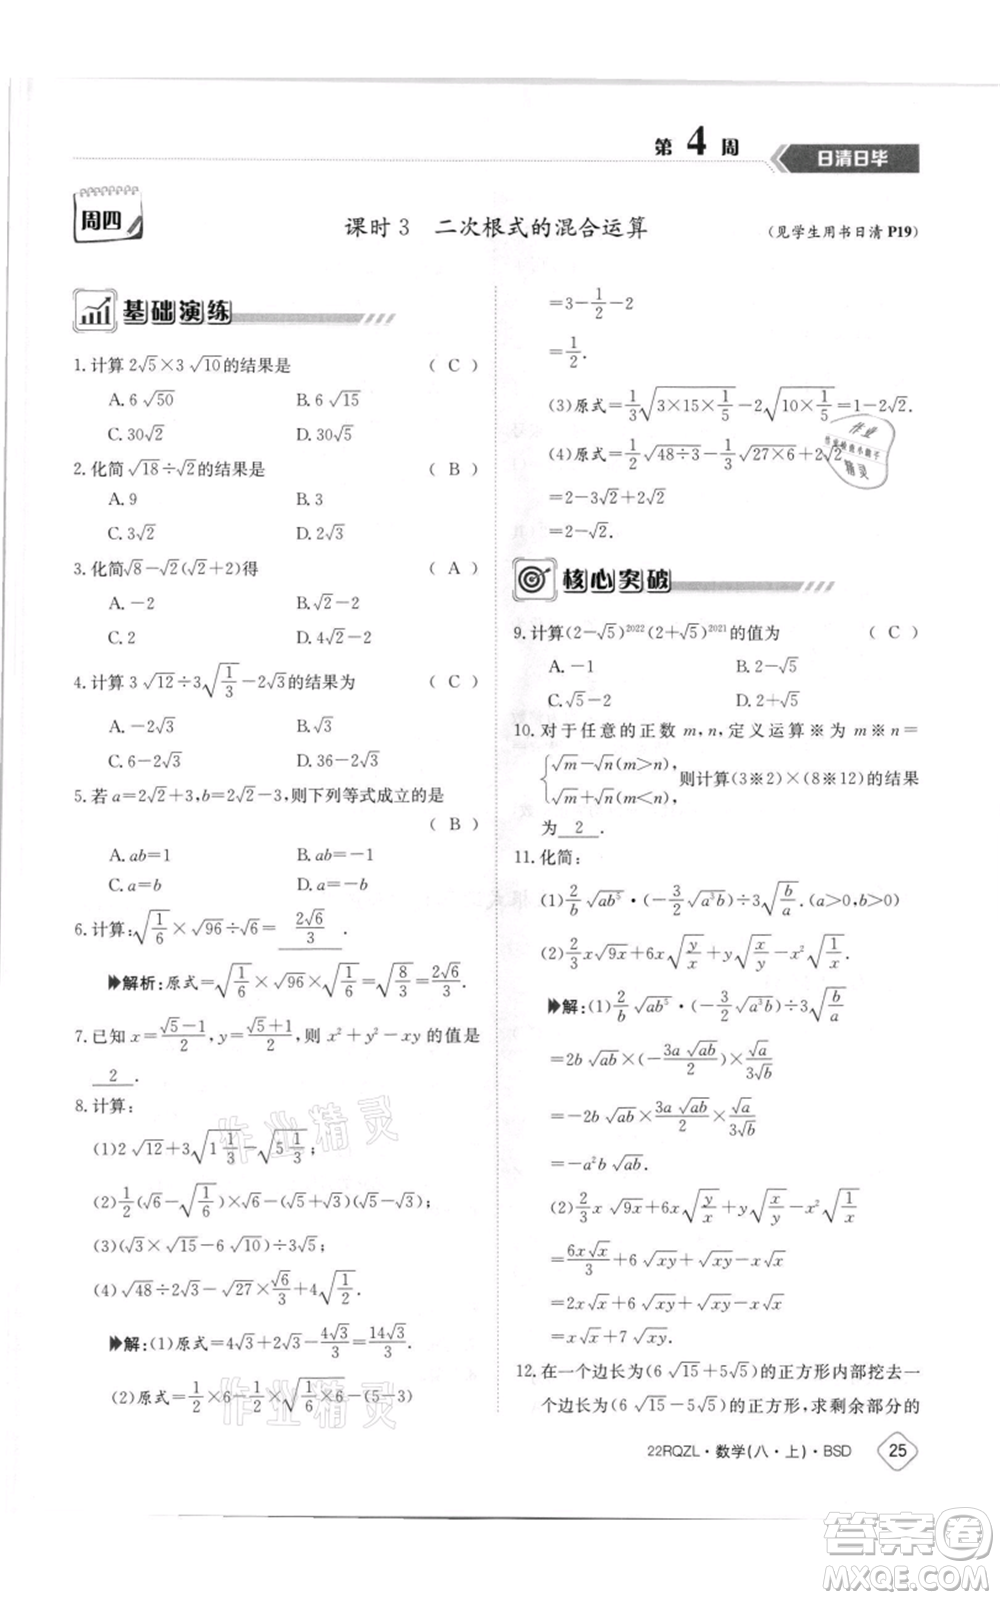 第 4 周
日清日毕
周四
课时 3 二次根式的混合运算
(见学生用书日清 P19)
基础演练
1. 计算 2√5×3√10的结果是 ( C )
A. 6√50 B. 6√15
C. 30√2 D. 30√5
2. 化简 √18÷√2的结果是 ( B )
A. 9 B. 3
C. 3√2 D. 2√3
3. 化简√8-√2(√2+2)得 ( A )
A. -2 B. √2-2
C. 2 D. 4√2-2
4. 计算 3√12÷3√(1/3)-2√3的结果为 ( C )
A. -2√3 B. √3
C. 6-2√3 D. 36-2√3
5. 若 a=2√2+3,b=2√2-3,则下列等式成立的是
( B )
A. ab=1 B. ab=-1
C. a=b D. a=-b
6. 计算:√(1/6)×√96÷√6= 2√6/3 .
解析:原式=√(1/6)×√96×√(1/6)=√(8/3)=2√6/3.
7. 已知 x=(√5-1)/2,y=(√5+1)/2,则 x²+y²-xy 的值是
2 .
8. 计算:
(1)2√12+3√(1 1/3)-√(5 1/3);
(2)1/2(√6-√(1/6))×√6-(√5+√3)(√5-√3);
(3)(√3×√15-6√10)÷3√5;
(4)√48÷2√3-√27×√6/3+4√(1/2).
解:(1)原式=4√3+2√3-4√3/3=14√3/3.
(2)原式=1/2×6-1/2×√(1/6×6)-(5-3)
=3-1/2-2
=1/2.
(3)原式=1/3√(3×15×1/5)-2√(10×1/5)=1-2√2.
(4)原式=1/2√(48÷3)-1/3√(27×6)+2√2
=2-3√2+2√2
=2-√2.
核心突破
9. 计算(2-√5)²⁰²²(2+√5)²⁰²¹的值为 ( C )
A. -1 B. 2-√5
C. √5-2 D. 2+√5
10. 对于任意的正数 m,n,定义运算※为 m※n=
{√m-√n(m>n), √m+√n(m<n), 则计算(3※2)×(8※12)的结果
为 2 .
11. 化简:
(1)2/b√ab⁵·(-3/2√a³b)÷3√(b/a).(a>0,b>0)
(2)2/3x√9x+6x√(y/x)+y√(x/y)-x²√(1/x).
解:(1)2/b√ab⁵·(-3/2√a³b)÷3√(b/a)
=2b√ab×(-3a√ab/2)×√a/3√b
=-2b√ab×3a√ab/2×√a/3√b
=-a²b√ab.
(2)2/3x√9x+6x√(y/x)+y√(x/y)-x²√(1/x)
=6x√x/3+6√xy+√xy-x√x
=2x√x+6√xy+√xy-x√x
=x√x+7√xy.
12. 在一个边长为(6√15+5√5)的正方形内部挖去一
个边长为(6√15-5√5)的正方形,求剩余部分的
22RQZL·数学(八·上)·BSD
25
作业精灵
作业精灵
作业
精灵
答案卷
MXQE.COM